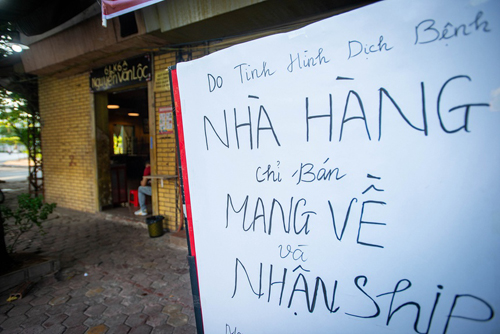 6LK6A
NGUYỄN VĂN LỘC
Do Tình Hình Dịch Bệnh
NHÀ HÀNG
Chỉ Bán
MANG VỀ
và
NHẬN Ship